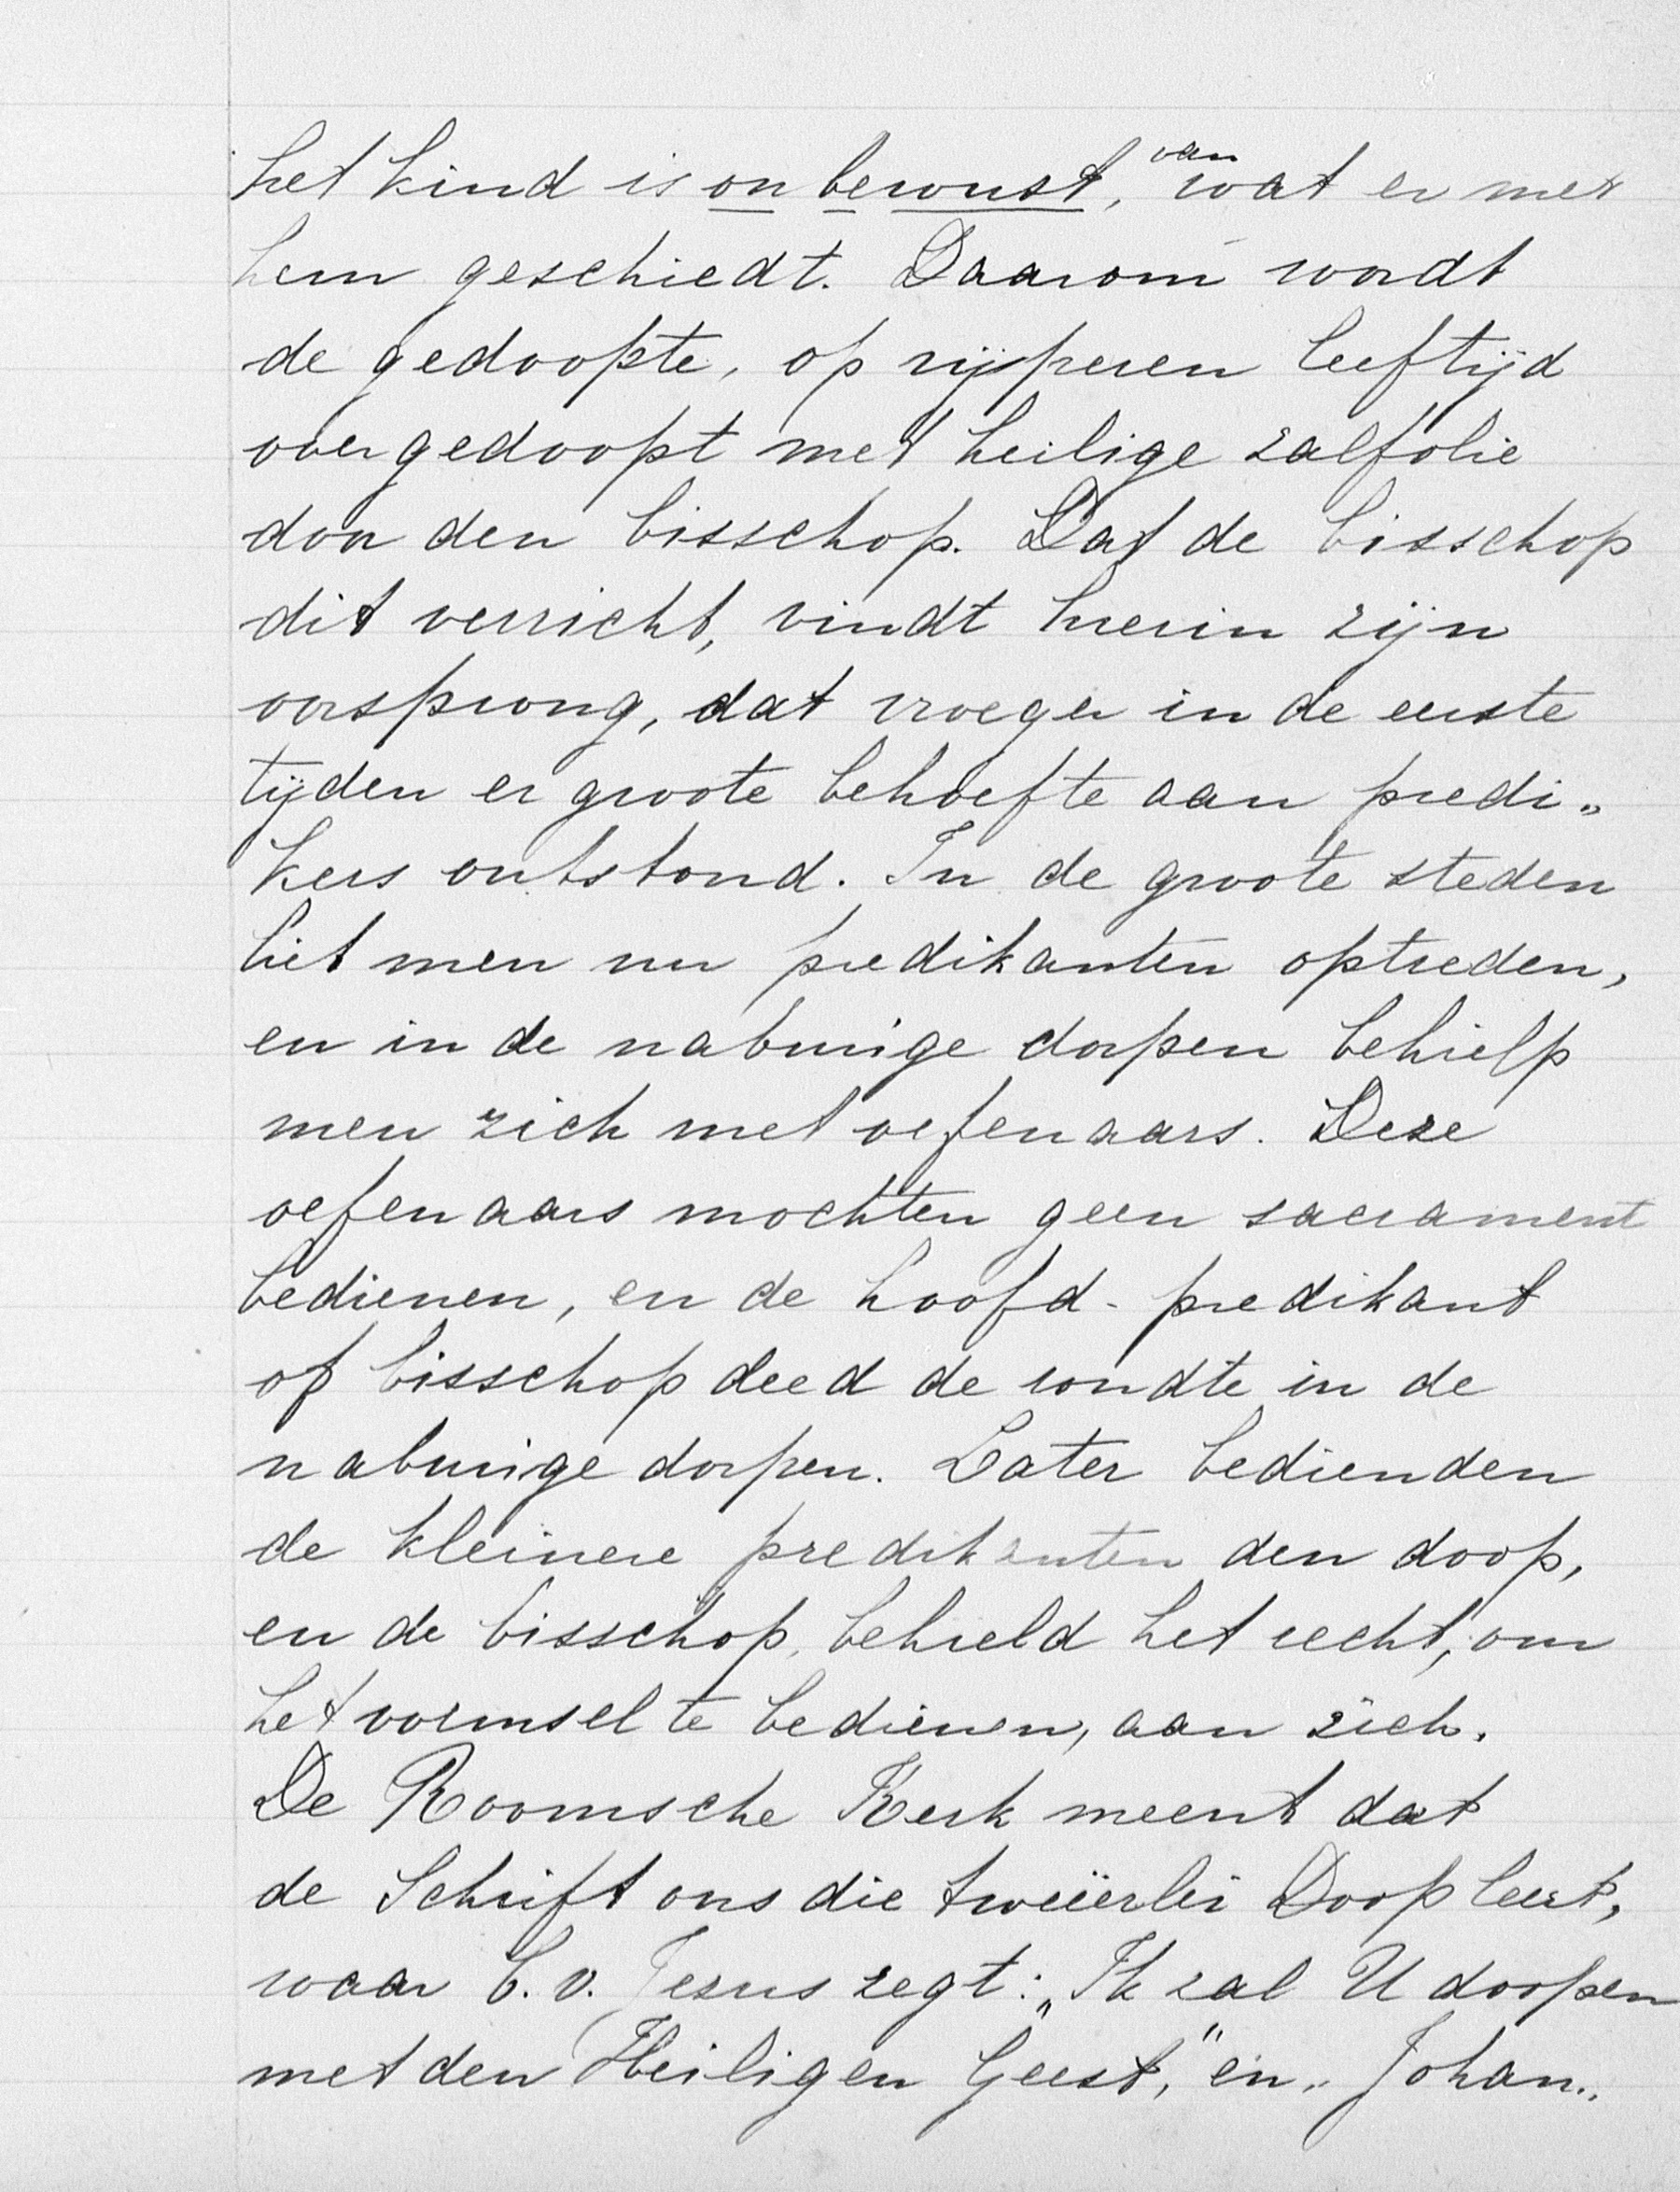 het kind is onbewust, van wat er met
hem geschiedt. Daarom wordt
de gedoopte, op rijperen leeftijd
overgedoopt met heilige zalfolie
door den bisschop. Dat de bisschop
dit verricht, vindt hierin zijn
oorsprong, dat vroeger in de eerste
tijden er groote behoefte aan predi„
kers ontstond. In de groote steden
liet men nu predikanten optreden,
en in de naburige dorpen behielp
men zich met oefenaars. Deze
oefenaars mochten geen sacrament
bedienen, en de hoofd-predikant
of bisschop deed de rondte in de
naburige dorpen. Later bedienden
de kleinere predikanten den doop,
en de bisschop, behield het recht, om
het vormsel te bedienen, aan zich.
De Roomsche Kerk meent dat
de Schrift ons die tweeërlei Doop leert,
waar b.v. Jezus zegt: „Ik zal U doopen
met den Heiligen Geest," en „Johan„